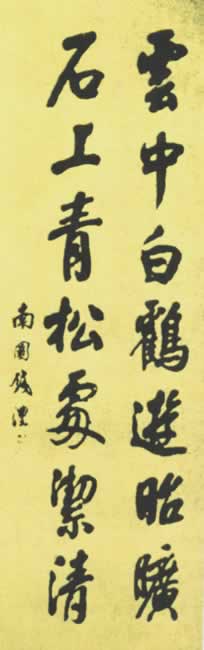 雲中白鶴遊昭曠
石上青松處潔清
南園錢灃